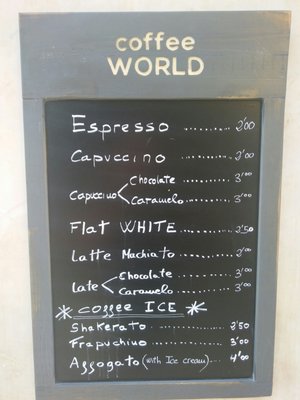 coffee
WORLD
Espresso ........... 2'00
Capuccino ........... 2'00
Chocolate ........ 3'00
Capuccino
Caramelo ........ 3'00
Flat WHITE ........... 2'50
Latte Machiato ........ 2'00
Chocolate ........ 3'00
Late
Caramelo ........ 3'00
* coffee ICE *
Shakerato ............ 2'50
Frapuchino ............ 3'00
Affogato (with Ice cream) .... 4'00